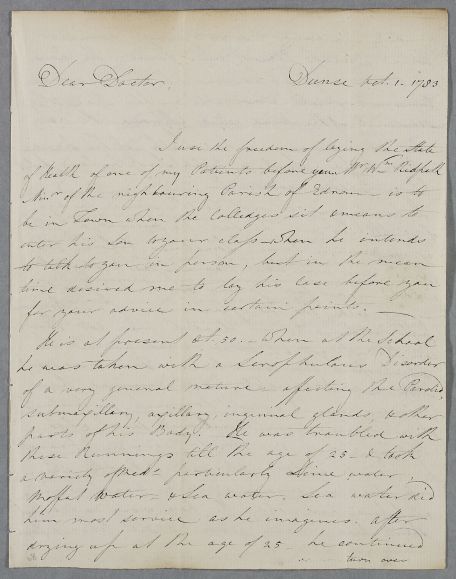 Dear Doctor, Dunse Oct. 1. 1783
I use the freedom of laying the State
of Health of one of my Patients before you. Mr. Wm. Ridpath
Minr. of the neighbouring Parish of Ednom - is to
be in Town when the Colledges sit & means to
enter his Son to your class - when he intends
to talk to you in person, but in the mean
time desired me to lay his case before you
for your advice in certain points. -
He is at present Æt. 50. - When at the School
he was taken with a Scrophulous Disorder
of a very general nature - affecting the Parotid,
submaxillary, axillary, inguinal glands, & other
parts of his Body. He was troubled with
these Runnings till the age of 25 - & took
a variety of Meds. particularly Lime water,
Moffat Water - & Sea water. Sea water did
him most service as he imagines. After
drying up at the age of 25 - he continued
turn over